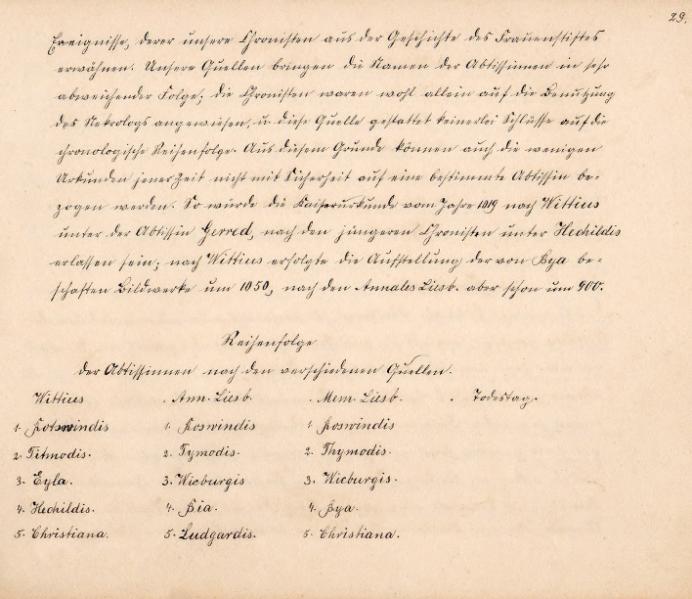 29.
Ereignisse, derer unsere Chronisten aus der Geschichte des Frauenstiftes
erwähnen. Unsere Quellen bringen die Namen der Äbtissinnen in sehr
abweichender Folge; die Chronisten waren wohl allein auf die Benutzung
des Nekrologs angewiesen, u. diese Quelle gestattet keinerlei Schlüsse auf die
chronologische Reihenfolge. Aus diesem Grunde können auch die wenigen
Urkunden jener Zeit nicht mit Sicherheit auf eine bestimmte Äbtissin be-
zogen werden. So würde die Kaiserurkunde vom Jahre 1019 nach Wittius
unter der Äbtissin Gerred, nach den jüngeren Chronisten unter Hechildis
erlassen sein; nach Wittius erfolgte die Aufstellung der von Bya be-
schafften Bildwerke um 1050, nach den Annales Liesb. aber schon um 900.
Reihenfolge
der Äbtissinnen nach den verschiedenen Quellen.
Wittius . Ann. Liesb. . Mem. Liesb. . Todestag.
1. Rotswindis 1. Roswindis 1. Roswindis
2. Titmodis. 2. Tymodis. 2. Thymodis.
3. Eyla. 3. Wicburgis 3. Wicburgis.
4. Hechildis. 4. Bia. 4. Bya.
5. Christiana. 5. Ludgardis. 5. Christiana.